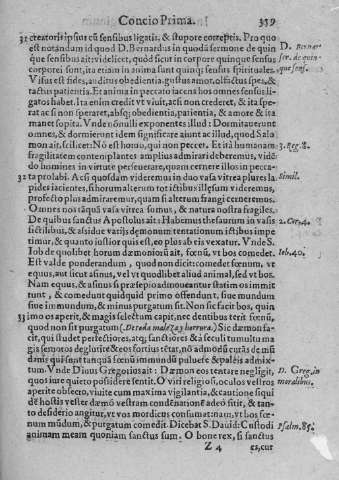 Concio Prima. 359
32 creatoris ipsius cū sensibus ligatis, & stupore correptis. Pro quo
est notandum id quod D. Bernardus in quodā sermone de quin
que sensibus ait: videlicet, quòd sicut in corpore quinque sensus
corporei sunt, ita etiam in anima sunt quinq; sensus spirituales.
Visus est fides, auditus obedientia, gustus amor, olfactus spes, &
tactus patientia. Et anima in peccato iacens hos omnes sensus li-
gatos habet. Ita enim credit vt viuat, ac si non crederet, & ita spe-
rat ac si non speraret, absq; obedientia, patientia, & amore & ita
manet sopita. Vnde nonnulli exponentes illud: Dormitauerunt
omnes, & dormierunt idem significare aiunt ac illud, quod Salo
mon ait, scilicet: Nō est homo, qui non peccet. Et ità humanam
fragilitatem contemplantes amplius admirari deberemus, vidē-
do homines in virtute perseuerare, quam cernere illos in pecca-
32 ta prolabi. Ac si quosdam videremus in duo vasa vitrea plures la
pides iacientes, si horum alterum tot ictibus illæsum videremus,
profecto plus admiraremur, quam si alterum frangi cerneremus.
Omnes nos tāquā vasa vitrea sumus, & natura nostra fragiles.
De quibus sanctus Apostolus ait: Habemus thesaurum in vasis
fictilibus, & alsiduè varijs dęmonum tentationum ictibus impe
timur, & quanto iustior quis est, eo plus ab eis vexatur. Vnde S.
Iob de quolibet horum dæmonium ait, fœnū, vt bos comedet.
Est valde ponderandum, quod non dicit: comedet fœnum, vt
equus, aut sicut asinus, vel vt quodlibet aliud animal, sed vt bos.
Nam equus, & asinus à præsepio admoueantur statim os immit
tunt, & comedunt quidquid primo offendunt, siue mundum
siue immundum, & minus purgatum sit. Non sic facit bos, quin
33 imo os aperit, & magis selectum capit, nec dentibus terit fœnū,
quod non sit purgatum (De toda maleza y horrura.) Sic dæmon fa-
cit, qui studet perfectiores, atq; sanctiores & à seculi tumultu ma
gis semotos deglutire & eos fortius ictat, nō admodū curās de mū
danis quẽ sunt tanquā fœnum immundū puluere & paleis admix-
tum. Vnde Diuus Gregorius ait: Dæmon eos tentare negligit,
quos iure quieto possidere sentit. O viri religiosi, oculos vestros
aperite obsecro, viuite cum maxima vigilantia, & cautione si qui
dẽ hostis vester dæmō vestram condẽnationẽ adeò sitit, & tan-
to desiderio angitur, vt vos mordicus consumat: nam, vt bos fœ-
num mūdum, & purgatum comedit. Dicebat S. Dauid: Custodi
animam meam quoniam sanctus sum. O bone rex, si sanctus
Z 4 es, cur
D. Bernar
ser. de quin-
que sens.
3. Reg. 8.
Simil.
2. Cor. 4.
Iob. 40.
D. Greg. in
moralibus.
Psalm. 85.